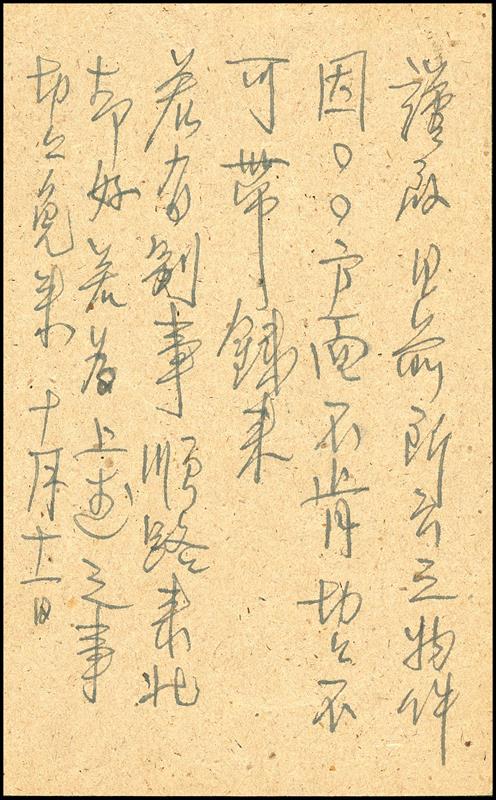 謹啟 日前所云之物件
因○○方面不肯切々不
可帶錢来
若有別事順路来北
却好若為上述之事
切々免来 十月十一日